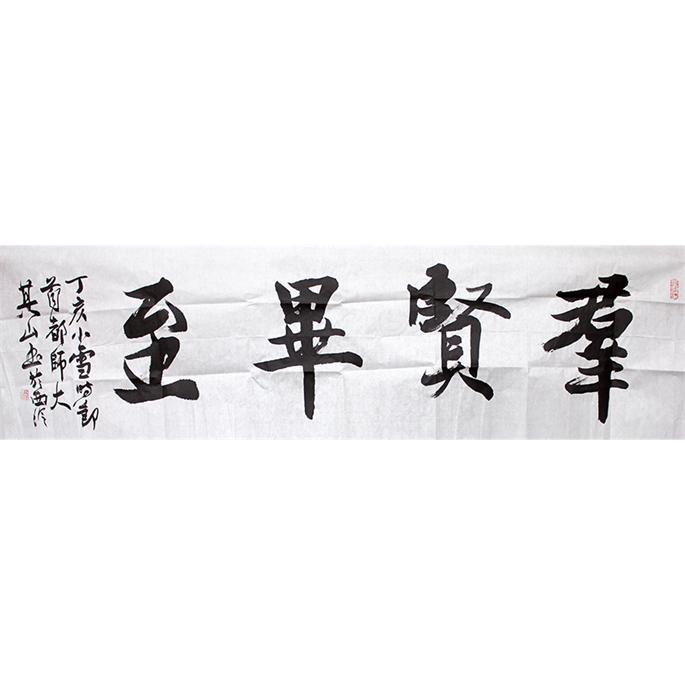 羣賢畢至
丁亥小雪時節
首都師大
其山書於西